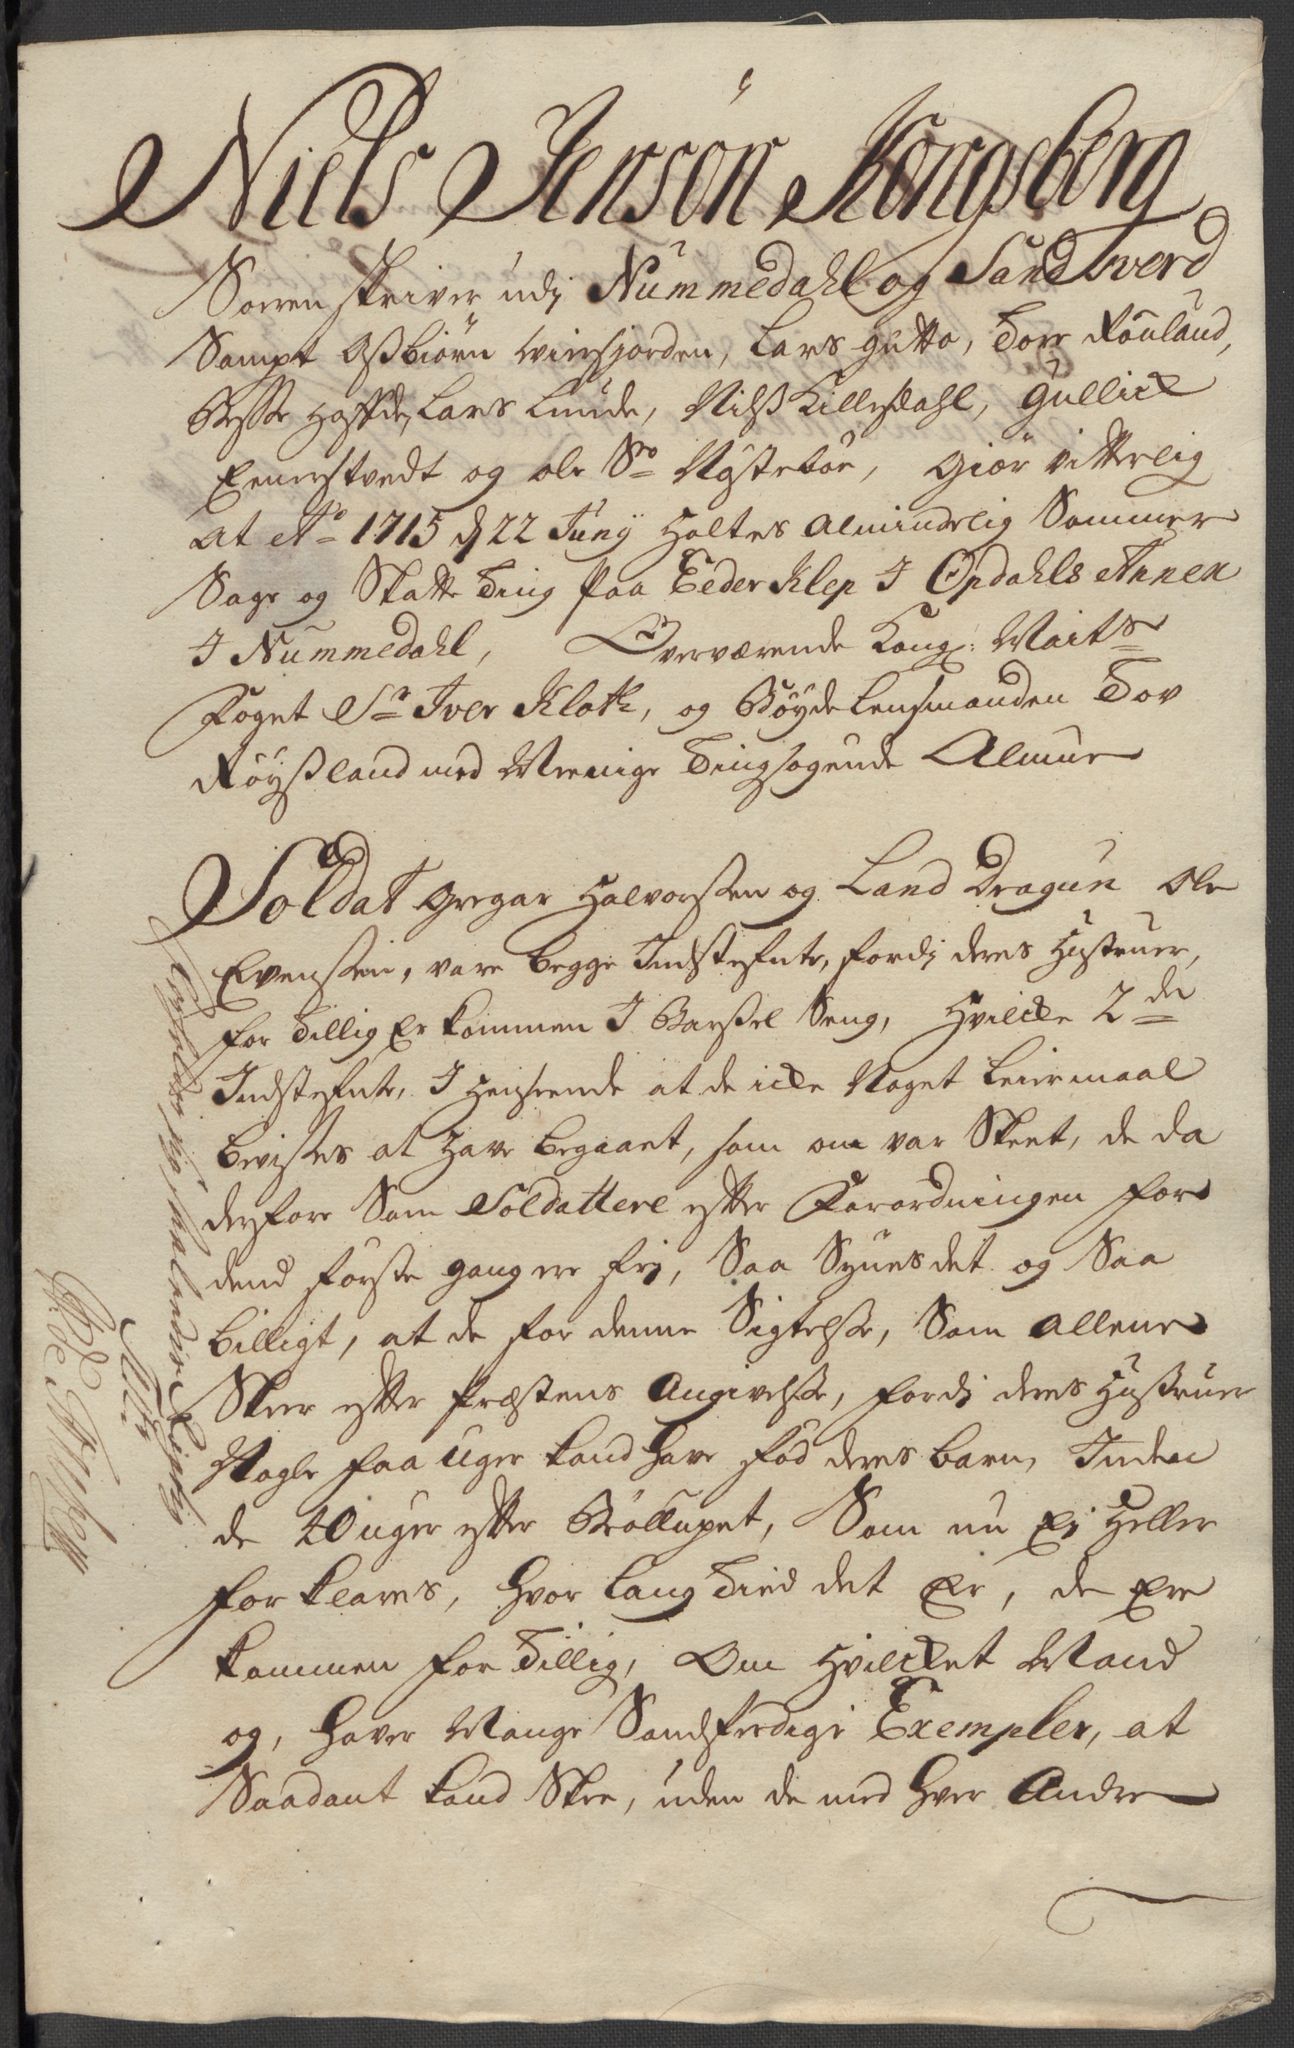 Niels Jensön Kongsberg
Sorren skriver udj Nummedahl og Sandsverd
Sampt Asbiörn Virfjorden, Lars Gutto, Torr Rouland,
Lars Lunde, Nilß Killisdahl, Gullich
Enerstvedt og ole Nÿstebön, giör vitterlig
at Ao 1715 d 22 Junÿ Holtes Almindelig Sommer
Sage og Skatte Ting paa Eeder Klep I Opdahls Annex
I Nummedahl, Overværende Kongl: Maits
Foget Sr Iver Klotz, og Böÿde Lensmanden Tov
Röÿßland med Menige Tingsøgende Almue
Soldat Gregar Halvorssen og Land Dragun Ole
Evenssen, vare begge Indstefnte, fordj deres Hustruer,
for tillig er kommen I Barßel Seng, Hvilcke 2de
Indstefnte, I Henseende at de icke Noget Leiermaal
bevißes at have begaaet, som om var Skeet, de da
desfore Som Soldattere efter Forordningen for
dend förste gang ere frj, Saa Synes det og Saa
billigt, at de for denne Sigtelße, Som allene
Skeer efter Præstens Angivelße, fordj deres Hustruer
Nogle faa uger kand have fød deres barn, Inden
de 40 uger efter Bröllupet, Som nu Ej Heller
forklares, hvor lang Tied det Er, de Ere
kommen for tillig, Om Hvilcket Mand
og, haver Mange Sandferdige Exempler, at
Saadant kand Skee, uden de med hver Andre